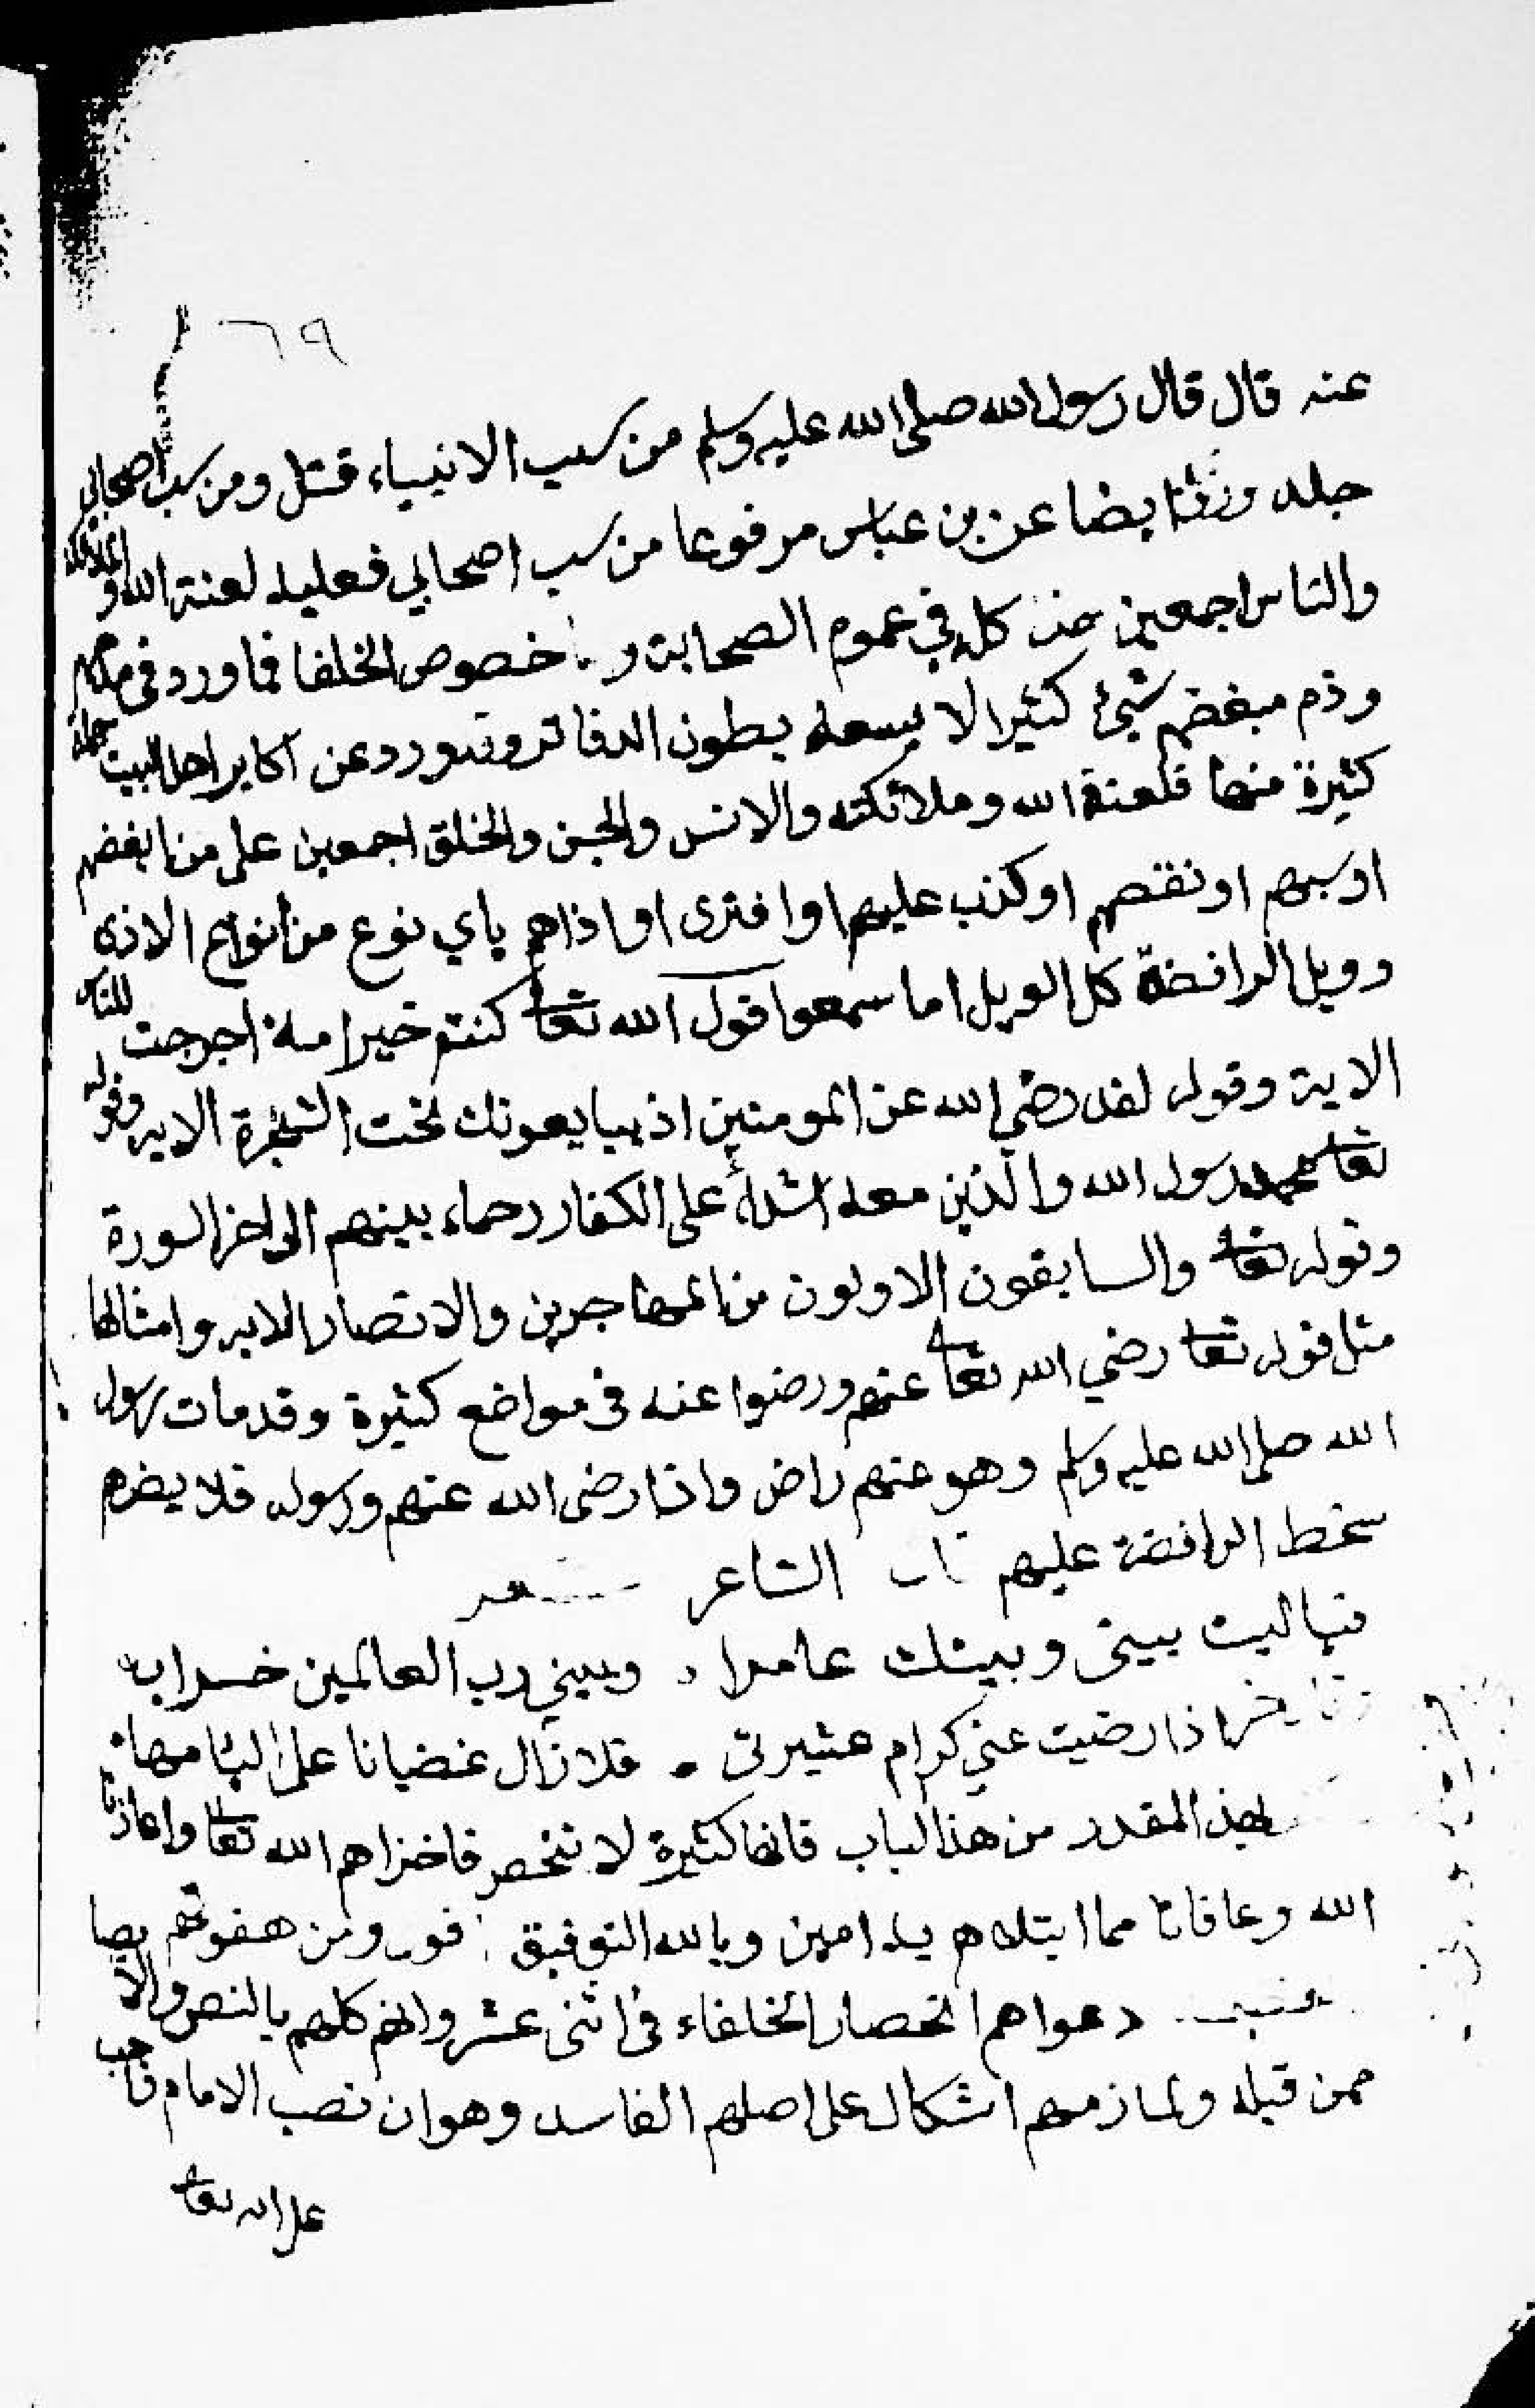 ٦٩
عنه قال قال رسول الله صلى الله عليه وسلم من سب الانبياء قتل ومن سب اصحابي
جلد ايضا عن بن عباس مرفوعا من سب اصحابي فعليه لعنة الله والملائكة
والناس اجمعين هذا كله في عموم الصحابة و خصوص الخلفا فما ورد في مدحهم
وذم مبغضهم شيئ كثير الا يسعه بطون الدفاتر وقد ورد عن اكابر اهل البيت جملة
كثيرة منها فلعنة الله وملائكته والانس والجن والخلق اجمعين على من ابغضهم
او سبهم او نقصهم او كذب عليهم او افترى او اذاهم باي نوع من انواع الاذى
وويل الرافضة كل الويل اما سمعوا قول الله تعا كنتم خير امة اخرجت للناس
الاية وقوله لقد رضي الله عن المومنين اذ يبايعونك تحت الشجرة الايه وقوله
تعا محمد رسول الله والذين معه اشداء على الكفار رحماء بينهم الى اخر السورة
وقوله تعا والسابقون الاولون من المهاجرين والانصار الايه وامثالها
مثل قوله تعا رضي الله تعا عنهم ورضوا عنه في مواضع كثيرة وقد مات رسول
الله صلى الله عليه وسلم وهو عنهم راض واذا رضى الله عنهم ورسوله فلا يضرهم
سخط الرافضة عليهم الشاعر شعر
فياليت بيني وبينك عامرا وبيني رب العالمين خراب
اذا رضيت عني كرام عشيرتي فلا زال غضبانا على لئامها
بهذ المقدر من هذا الباب فانها كثيرة لا تنحصر فاخزاهم الله تعا واعاذنا
الله وعافانا مما ابتلاهم به امين وبالله التوفيق قوله ومن هفوتهم
دعواهم انحصار الخلفاء في اثنى عشر وانهم كلهم بالنص والا
ممن قبله ولما زمهم اشكال على اصلهم الفاسد وهو ان نصب الامام واجب
على الله تعا